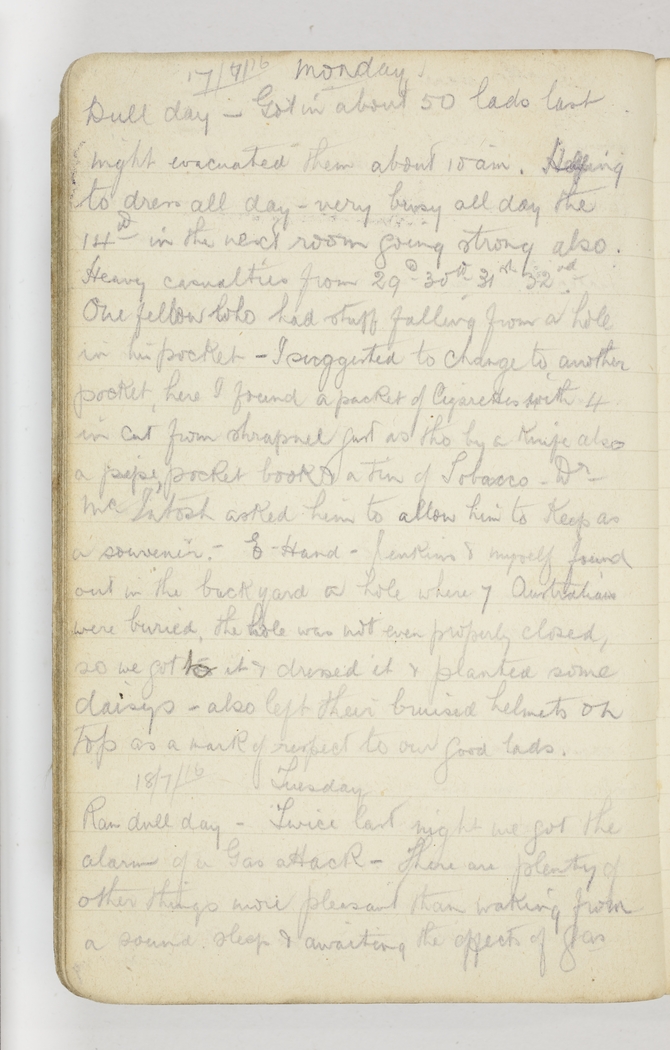 17/7/16 Monday.
Dull day - Got in about 50 lads last
night evacuated them about 10 am. Helping
to dress all day - very busy all day the
14th in the next room going strong also.
Heavy casualties from 29th 30th 31st 32nd.
One fellow who had stuff falling from a hole
in his pocket - I suggested to change to another
pocket, here I found a packet of Cigarettes with 4
in cut from shrapnel just as tho by a Knife also
a pipe, pocket book & a tin of Tobacco - Dr
McIntosh asked him to allow him to Keep as
a souvenir. - E Hand - Jenkins & myself found
out in the backyard a hole where 7 Australians
were buried, the hole was not even properly closed,
so we got to it & dressed it & planted some
daisys - also left their bruised helmets on
top as a mark of respect to our good lads.
18/7/16 Tuesday.
Rain dull day - Twice last night we got the
alarm of a Gas attack - There are plenty of
other things more pleasant than waking from
a sound sleep & awaiting the effects of gas